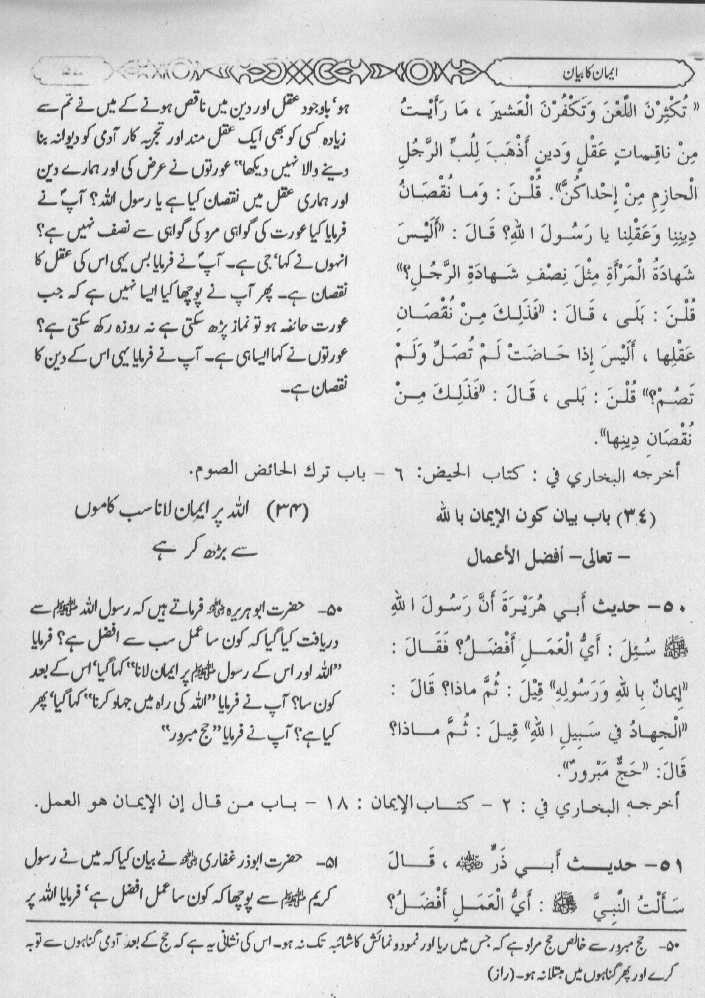 ایمان کا بیان
« تُكْثِرْنَ اللَّعْنَ وَتَكْفُرْنَ الْعَشِيرَ ، مَا رَأَيْتُ
مِنْ نَاقِصَاتِ عَقْلٍ وَدِينٍ أَذْهَبَ لِلُبِّ الرَّجُلِ
الْحَازِمِ مِنْ إِحْدَاكُنَّ». قُلْنَ : وَمَا نُقْصَانُ
دِينِنَا وَعَقْلِنَا يا رَسُولَ اللهِ؟ قَالَ : «أَلَيْسَ
شَهَادَةُ الْمَرْأَةِ مِثْلَ نِصْفِ شَهَادَةِ الرَّجُلِ؟»
قُلْنَ : بَلَى ، قَالَ : «فَذَلِكَ مِنْ نُقْصَانِ
عَقْلِها ، أَلَيْسَ إذا حَاضَتْ لَمْ تُصَلِّ وَلَمْ
تَصُمْ؟» قُلْنَ : بَلى ، قَالَ : «فَذَلِكَ مِنْ
نُقْصَانِ دِينِها».
ہو‘ باوجود عقل اور دین میں ناقص ہونے کے میں نے تم سے
زیادہ کسی کو بھی ایک عقل مند اور تجربہ کار آدمی کو دیوانہ بنا
دینے والا نہیں دیکھا‘‘ عورتوں نے عرض کی اور ہمارے دین
اور ہماری عقل میں نقصان کیا ہے یا رسول اللہ؟ آپؐ نے
فرمایا کیا عورت کی گواہی مرد کی گواہی سے نصف نہیں ہے؟
انہوں نے کہا‘ جی ہے۔ آپؐ نے فرمایا بس یہی اس کی عقل کا
نقصان ہے۔ پھر آپ نے پوچھا کیا ایسا نہیں ہے کہ جب
عورت حائضہ ہو تو نماز پڑھ سکتی ہے نہ روزہ رکھ سکتی ہے؟
عورتوں نے کہا ایسا ہی ہے۔ آپ نے فرمایا یہی اس کے دین کا
نقصان ہے۔
أخرجه البخاري في : كتاب الحيض: ٦ – باب ترك الحائض الصوم.
(٣٤) باب بيان كون الإيمان بالله
– تعالى– أفضل الأعمال
(۳۴) اللہ پر ایمان لانا سب کاموں
سے بڑھ کر ہے
٥٠– حديث أبي هُرَيْرَةَ أَنَّ رَسُولَ اللهِ
ﷺ سُئِلَ : أَيُّ الْعَمَلِ أَفْضَلُ؟ فَقَالَ :
«إِيمانٌ بِاللهِ وَرَسُولِهِ» قِيلَ : ثُمَّ ماذا؟ قَالَ :
«الْجِهادُ في سَبِيلِ اللهِ» قِيلَ : ثُمَّ ماذا؟
قَالَ: «حَجٌّ مَبْرُورٌ».
۵۰۔ حضرت ابو ہریرہ رضی اللہ عنہ فرماتے ہیں کہ رسول اللہ ﷺ سے
دریافت کیا گیا کہ کون سا عمل سب سے افضل ہے؟ فرمایا
’’اللہ اور اس کے رسول ﷺ پر ایمان لانا‘‘ کہا گیا‘ اس کے بعد
کون سا؟ آپ نے فرمایا ’’اللہ کی راہ میں جہاد کرنا‘‘ کہا گیا‘ پھر
کیا ہے؟ آپ نے فرمایا ’’حج مبرور‘‘
أخرجه البخاري في : ٢ – كتاب الإيمان : ١٨ – باب من قال إن الإيمان هو العمل.
٥١– حديث أبي ذَرٍّ رضی اللہ عنہ ، قَالَ
سَأَلْتُ النَّبِيَّ ﷺ : أَيُّ الْعَمَلِ أَفْضَلُ؟
۵۱۔ حضرت ابوذر غفاری رضی اللہ عنہ نے بیان کیا کہ میں نے رسول
کریم ﷺ سے پوچھا کہ کون سا عمل افضل ہے‘ فرمایا اللہ پر
۵۰۔ حج مبرور سے خالص حج مراد ہے کہ جس میں ریا اور نمود و نمائش کا شائبہ تک نہ ہو۔ اس کی نشانی یہ ہے کہ حج کے بعد آدمی گناہوں سے توبہ
کرے اور پھر گناہوں میں مبتلا نہ ہو۔ (راز)